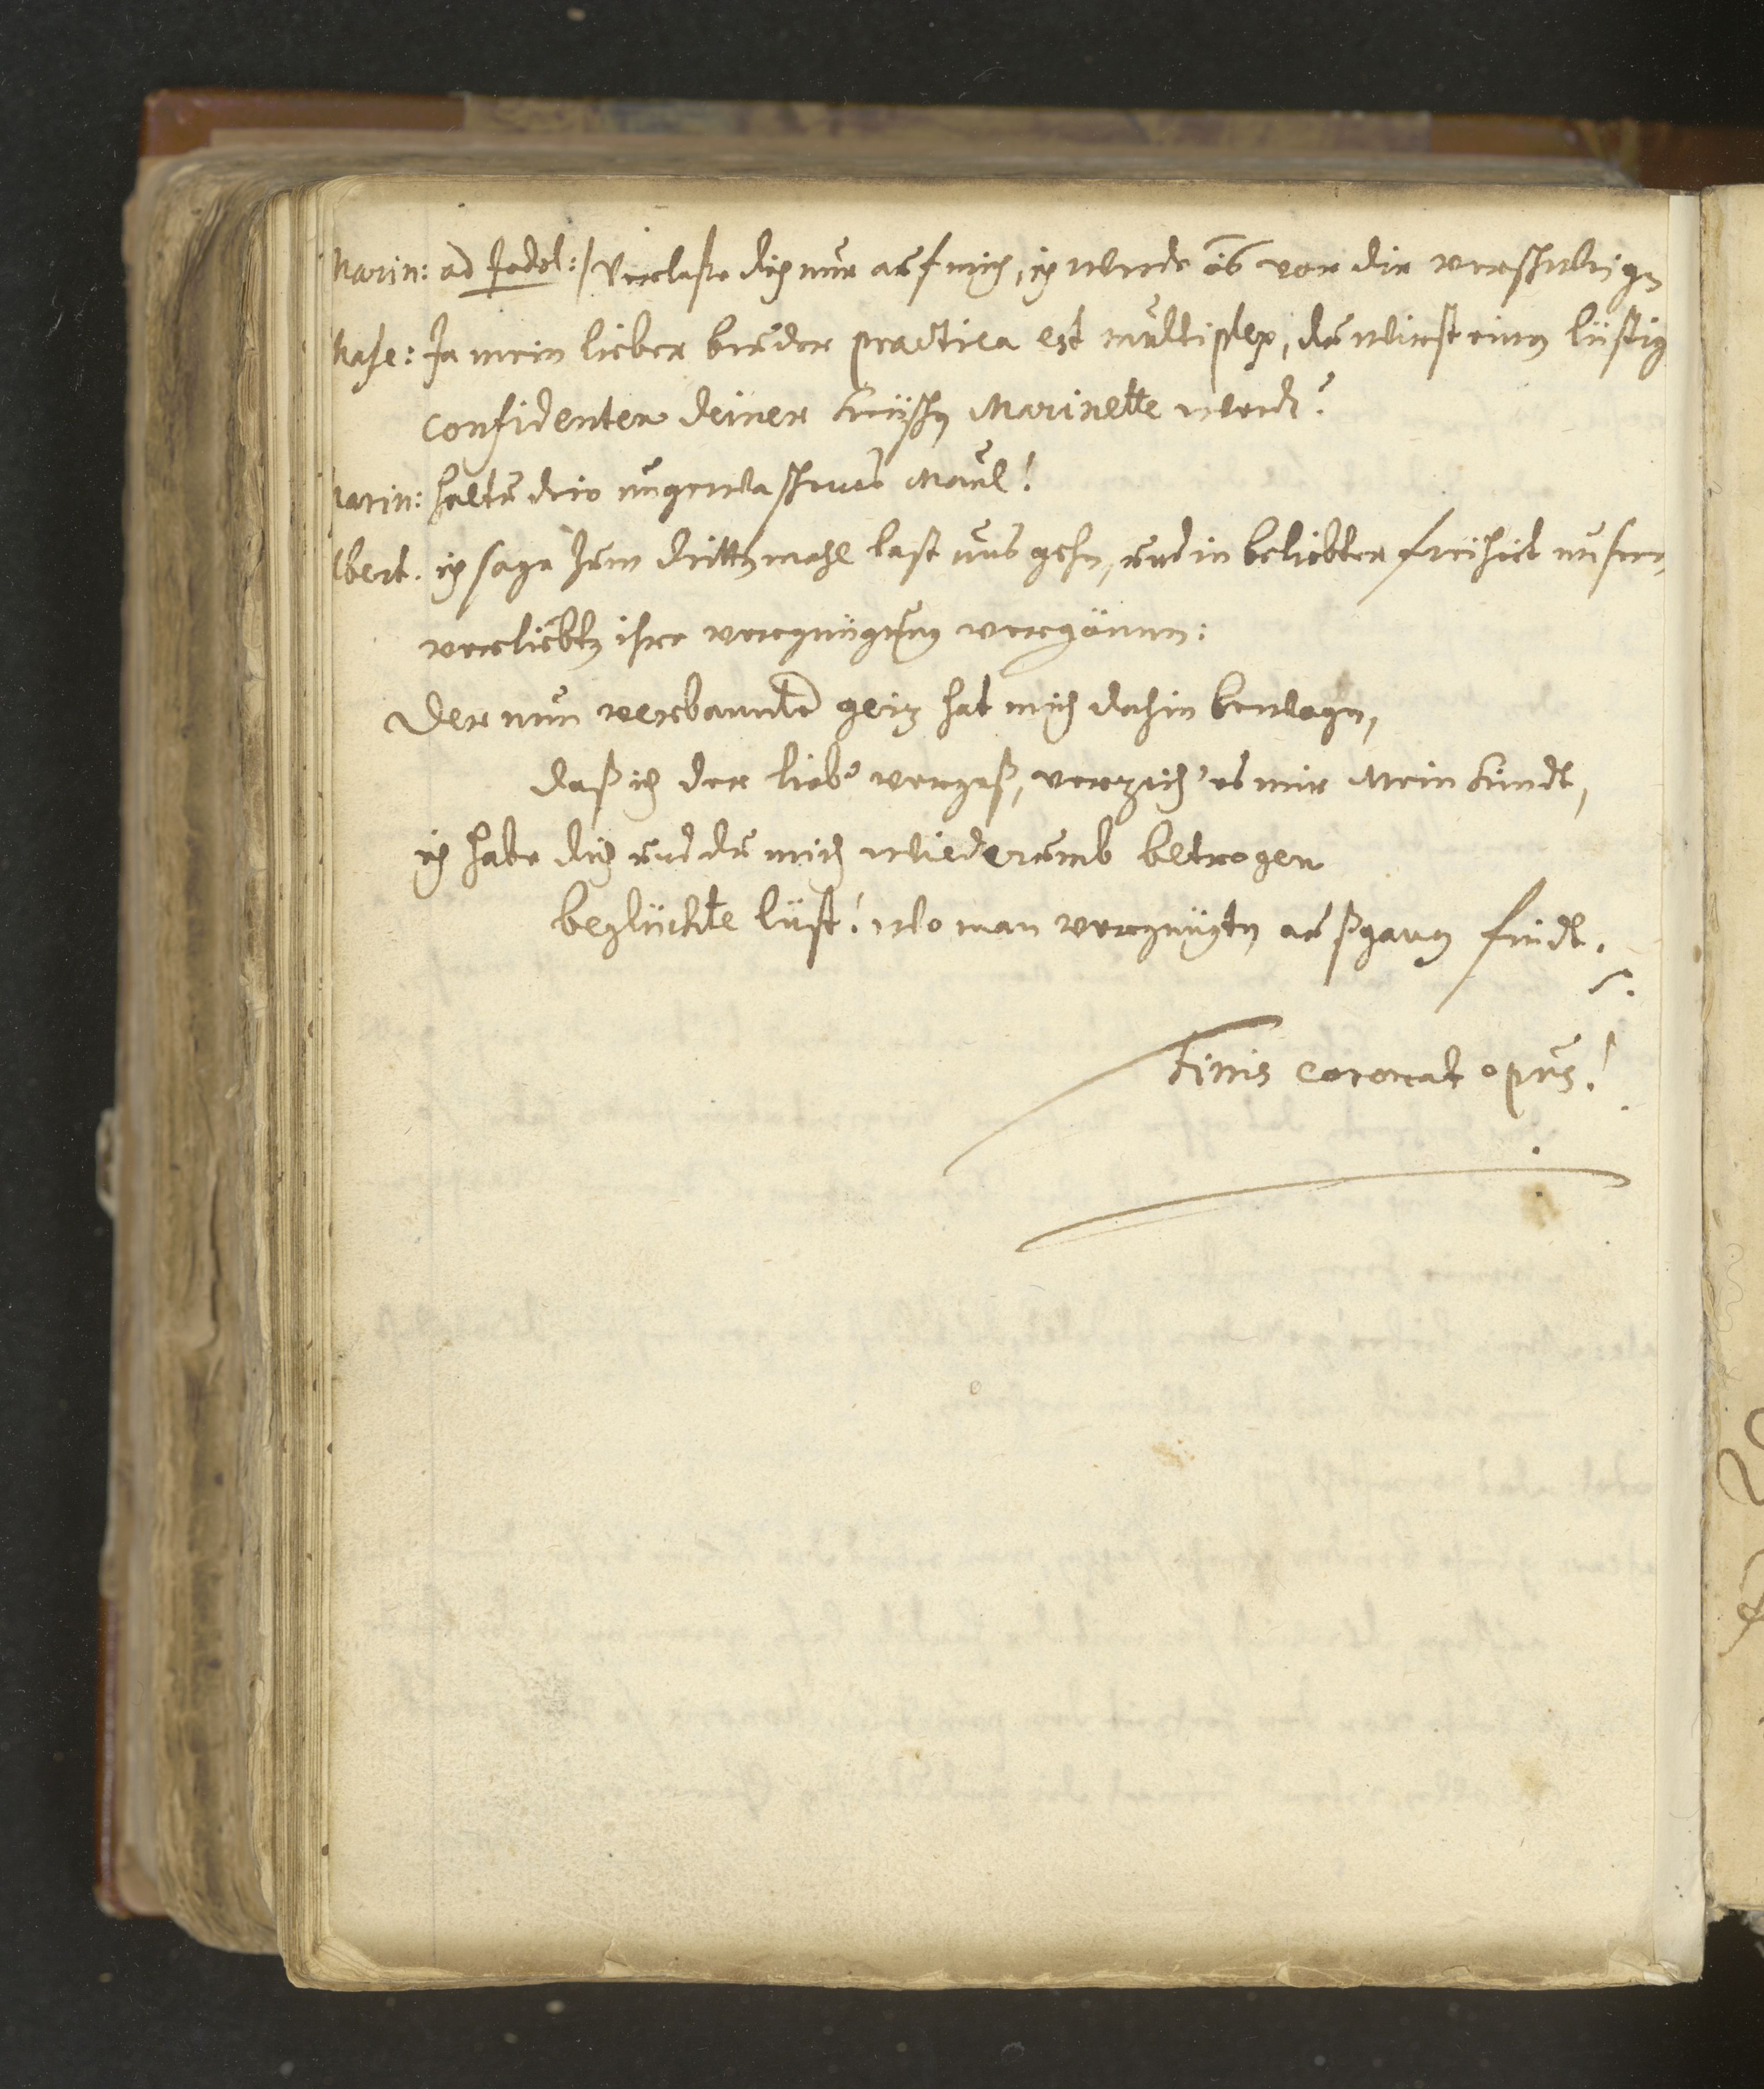 Marin: ad Jodel:/ Verlaße dich nur auf mich, ich werde es vor dir verschweigen
Mase: Ja mein lieber bruder practica est multiplex, du wirst einen lustigen
confidenten deiner keuschen Marinette werden?
Marin: halt du dein ungewaschenes Maul!
lbert. ich sage zum dritten mahl last uns gehen, und in beliebter freiheit unsern
verliebten ihre vergnügung vergönnen:
Der nun verbannte geiz hat mich dahin bewogen,
daß ich der lieb' vergaß, verzeih' es mir Mein Kindt,
ich habe dich und du mich wiederumb betrogen
beglückte lust! wo man vergnügten außgang findt.
Finis coronat opus!